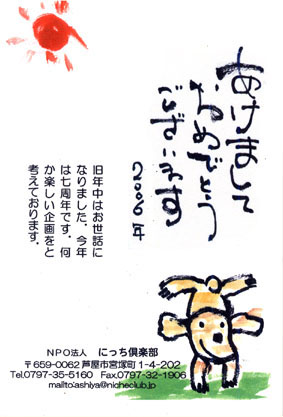 あけまして
おめでとう
ございます
2006年
旧年中はお世話に
なりました。今年
は七周年です。何
か楽しい企画をと
考えております。
NPO法人 にっち倶楽部
〒659-0062 芦屋市宮塚町1-4-202
Tel.0797-35-5160 Fax.0797-32-1906
mailto:ashiya@nicheclub.jp